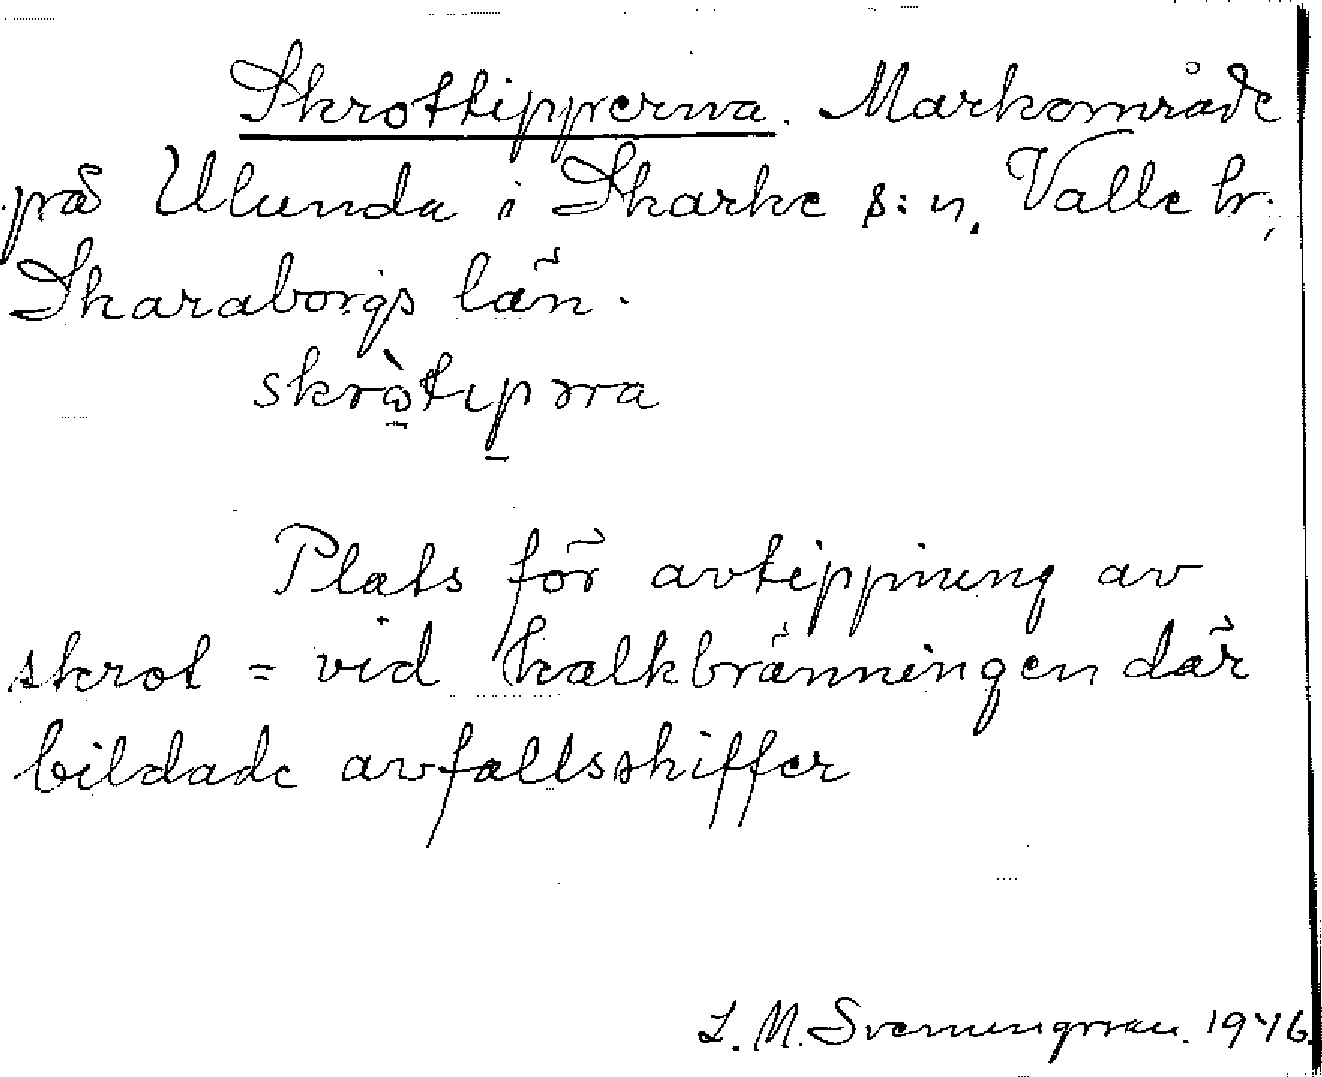 Skrottipperna. Markområde
på Ulunda i Skarke s:n, Valle hr;
Skaraborgs län.
Plats för avtippning av
skrot = vid kalkbränningen där
bildade avfallsskiffer
L. M. Svenungsson. 1946.